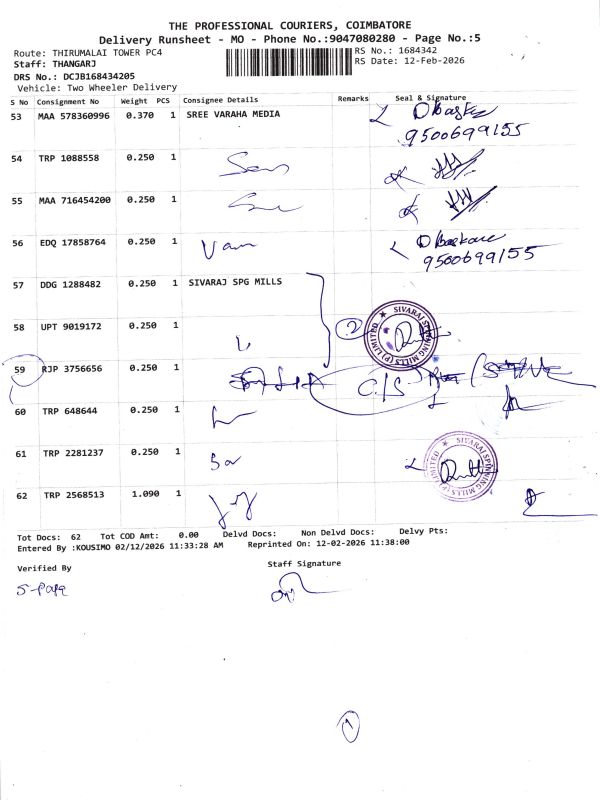 THE PROFESSIONAL COURIERS, COIMBATORE
Delivery Runsheet - MO - Phone No.:9047080280 - Page No.:5
Route: THIRUMALAI TOWER PC4
RS No.: 1684342
Staff: THANGARJ
RS Date: 12-Feb-2026
DRS No.: DCJB168434205
Vehicle: Two Wheeler Delivery
S No Consignment No Weight PCS Consignee Details Remarks Seal & Signature
53 MAA 578360996 0.370 1 SREE VARAHA MEDIA
9500699155
54 TRP 1088558 0.250 1
55 MAA 716454200 0.250 1
56 EDQ 17858764 0.250 1
9500699155
57 DDG 1288482 0.250 1 SIVARAJ SPG MILLS
58 UPT 9019172 0.250 1
2
SIVARAJ SPINNING MILLS (P) LIMITED
59 RJP 3756656 0.250 1
C/S
60 TRP 648644 0.250 1
61 TRP 2281237 0.250 1
SIVARAJ SPINNING MILLS (P) LIMITED
62 TRP 2568513 1.090 1
Tot Docs: 62 Tot COD Amt: 0.00 Delvd Docs: Non Delvd Docs: Delvy Pts:
Entered By :KOUSIMO 02/12/2026 11:33:28 AM Reprinted On: 12-02-2026 11:38:00
Verified By
Staff Signature
1